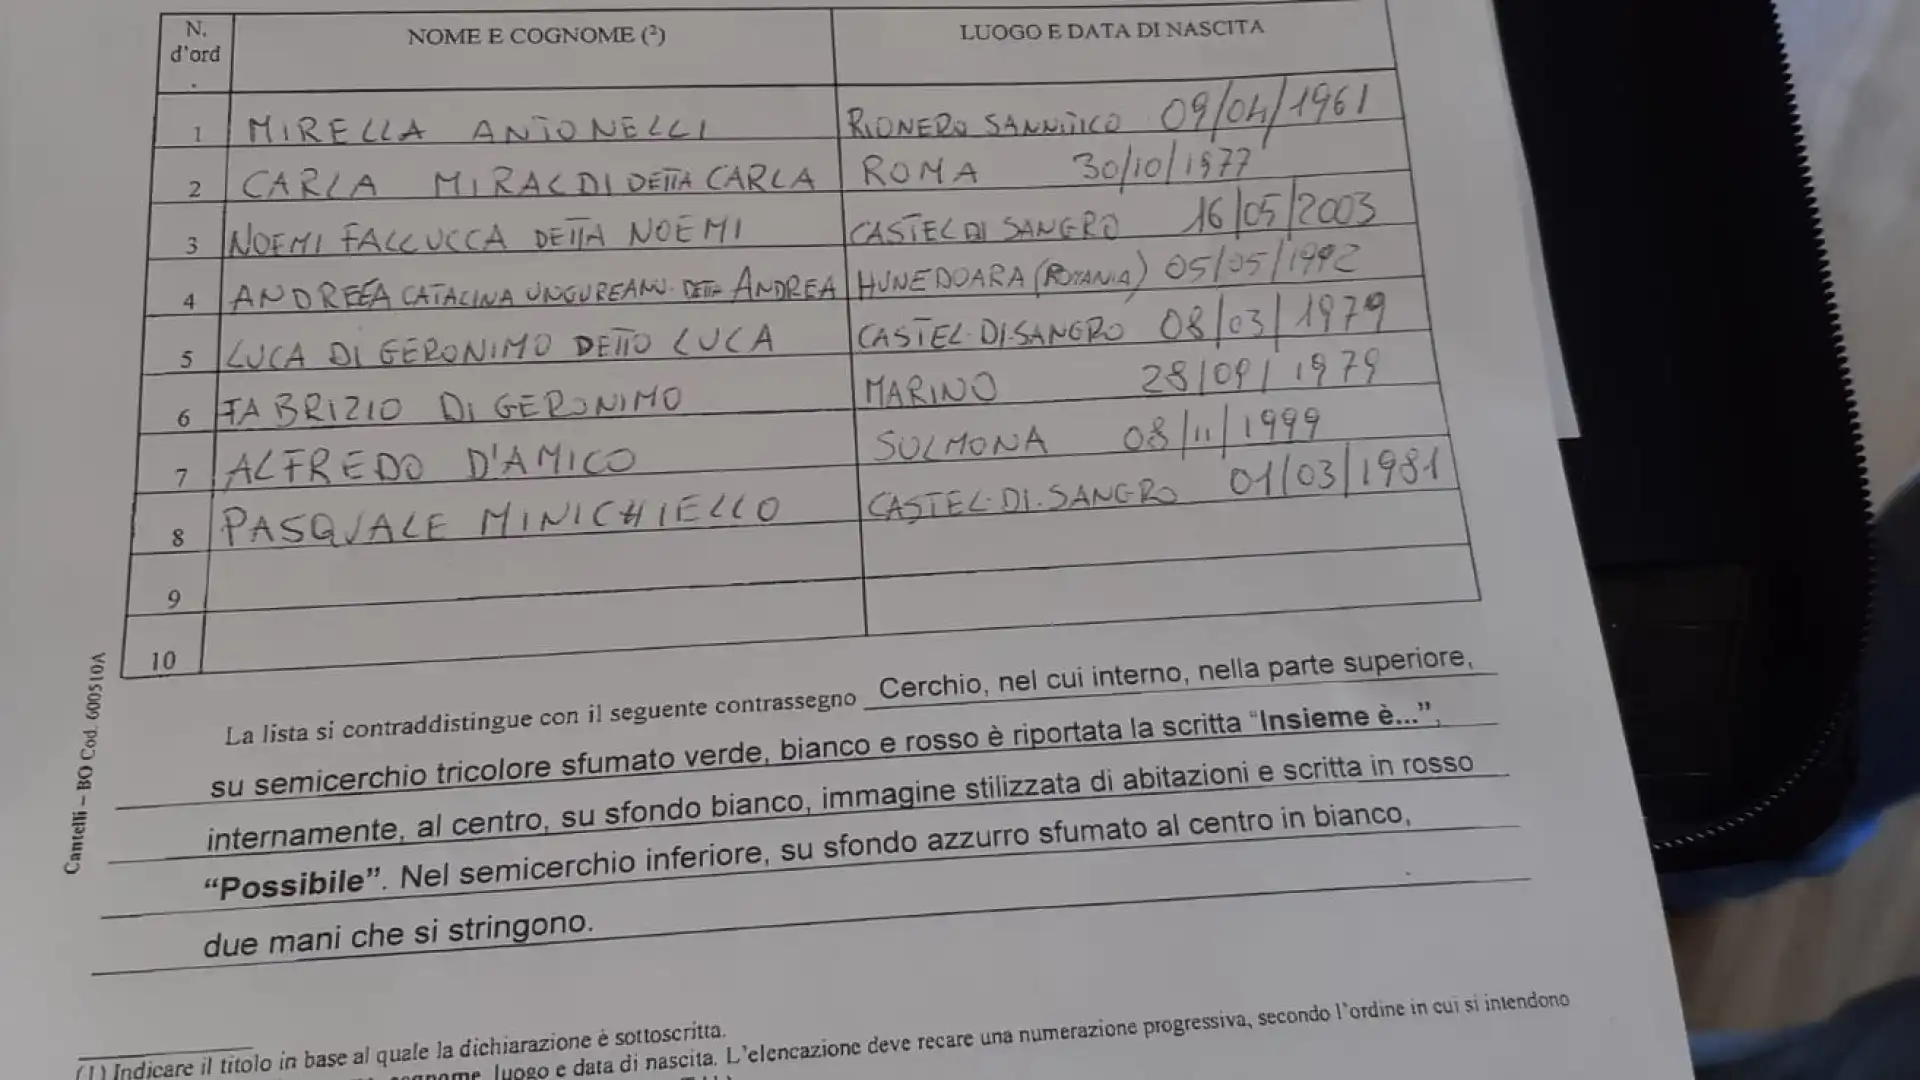 N. d'ord. NOME E COGNOME (²) LUOGO E DATA DI NASCITA
1 MIRELLA ANTONELLI RIONERO SANNITICO 09/04/1961
2 CARLA MIRALDI DETTA CARLA ROMA 30/10/1977
3 NOEMI FALLUCCA DETTA NOEMI CASTEL DI SANGRO 16/05/2003
4 ANDREEA CATALINA UNGUREANU DETTA ANDREA HUNEDOARA (ROMANIA) 05/05/1992
5 LUCA DI GERONIMO DETTO LUCA CASTEL-DI-SANGRO 08/03/1979
6 FABRIZIO DI GERONIMO MARINO 28/09/1979
7 ALFREDO D'AMICO SULMONA 08/11/1999
8 PASQUALE MINICHIELLO CASTEL-DI-SANGRO 01/03/1981
9
10
Cantelli – BO Cod. 600510A
La lista si contraddistingue con il seguente contrassegno Cerchio, nel cui interno, nella parte superiore,
su semicerchio tricolore sfumato verde, bianco e rosso è riportata la scritta "Insieme è...",
internamente, al centro, su sfondo bianco, immagine stilizzata di abitazioni e scritta in rosso
“Possibile”. Nel semicerchio inferiore, su sfondo azzurro sfumato al centro in bianco,
due mani che si stringono.
(1) Indicare il titolo in base al quale la dichiarazione è sottoscritta.
luogo e data di nascita. L'elencazione deve recare una numerazione progressiva, secondo l'ordine in cui si intendono